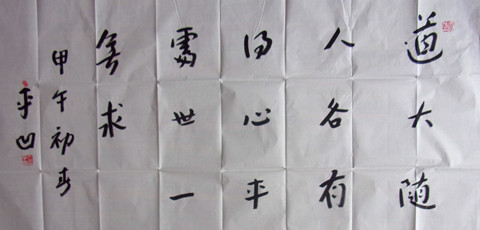 道大随
人各有
得心平
处世一
无求
甲午初春
平凹